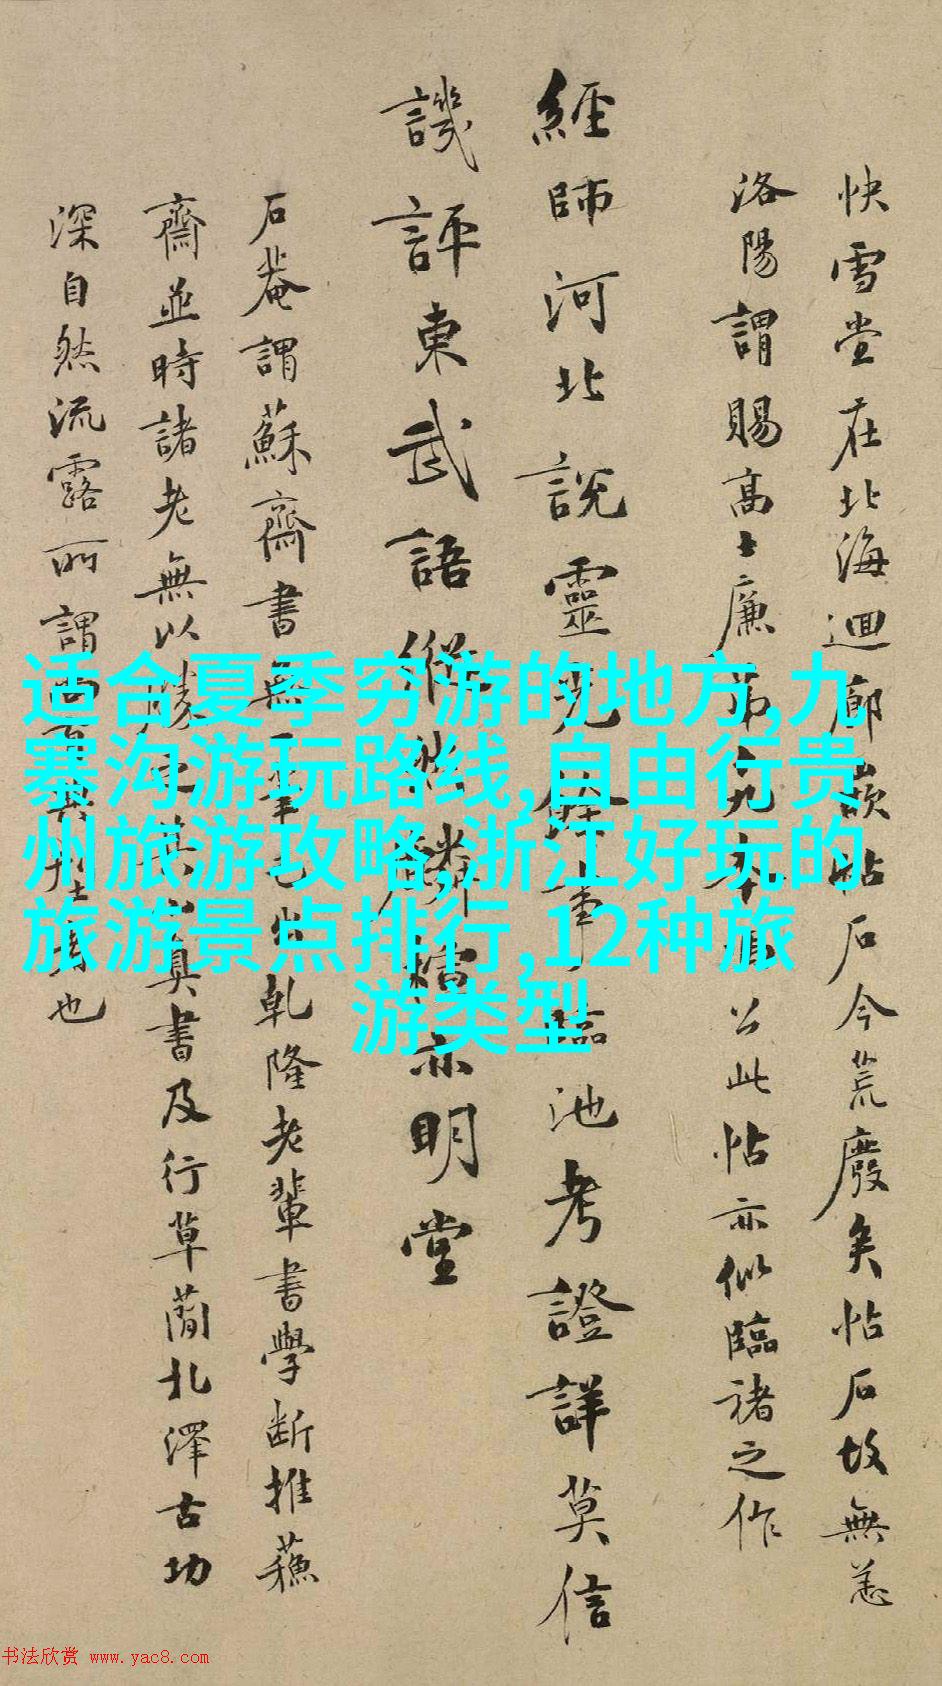 快雪堂在北海迴廊嵌帖石今荒廢矣帖石故無恙
洛陽謂賜高士廉
公此帖亦似臨褚之作
經師河北說靈光
臨池考證詳莫信
譏評東武語
亦明堂
石菴謂蘇齋書無一筆
乾隆老輩書學斷推蘇
齋並時諸老無以勝之
真書及行草蘭北澤古功
深自然流露所謂
也
适合夏季穷游的地方,九
寨沟游玩路线,自由行贵
州旅游攻略,浙江好玩的
旅游景点排行,12种旅
游类型
书法欣赏 www.yac8.com